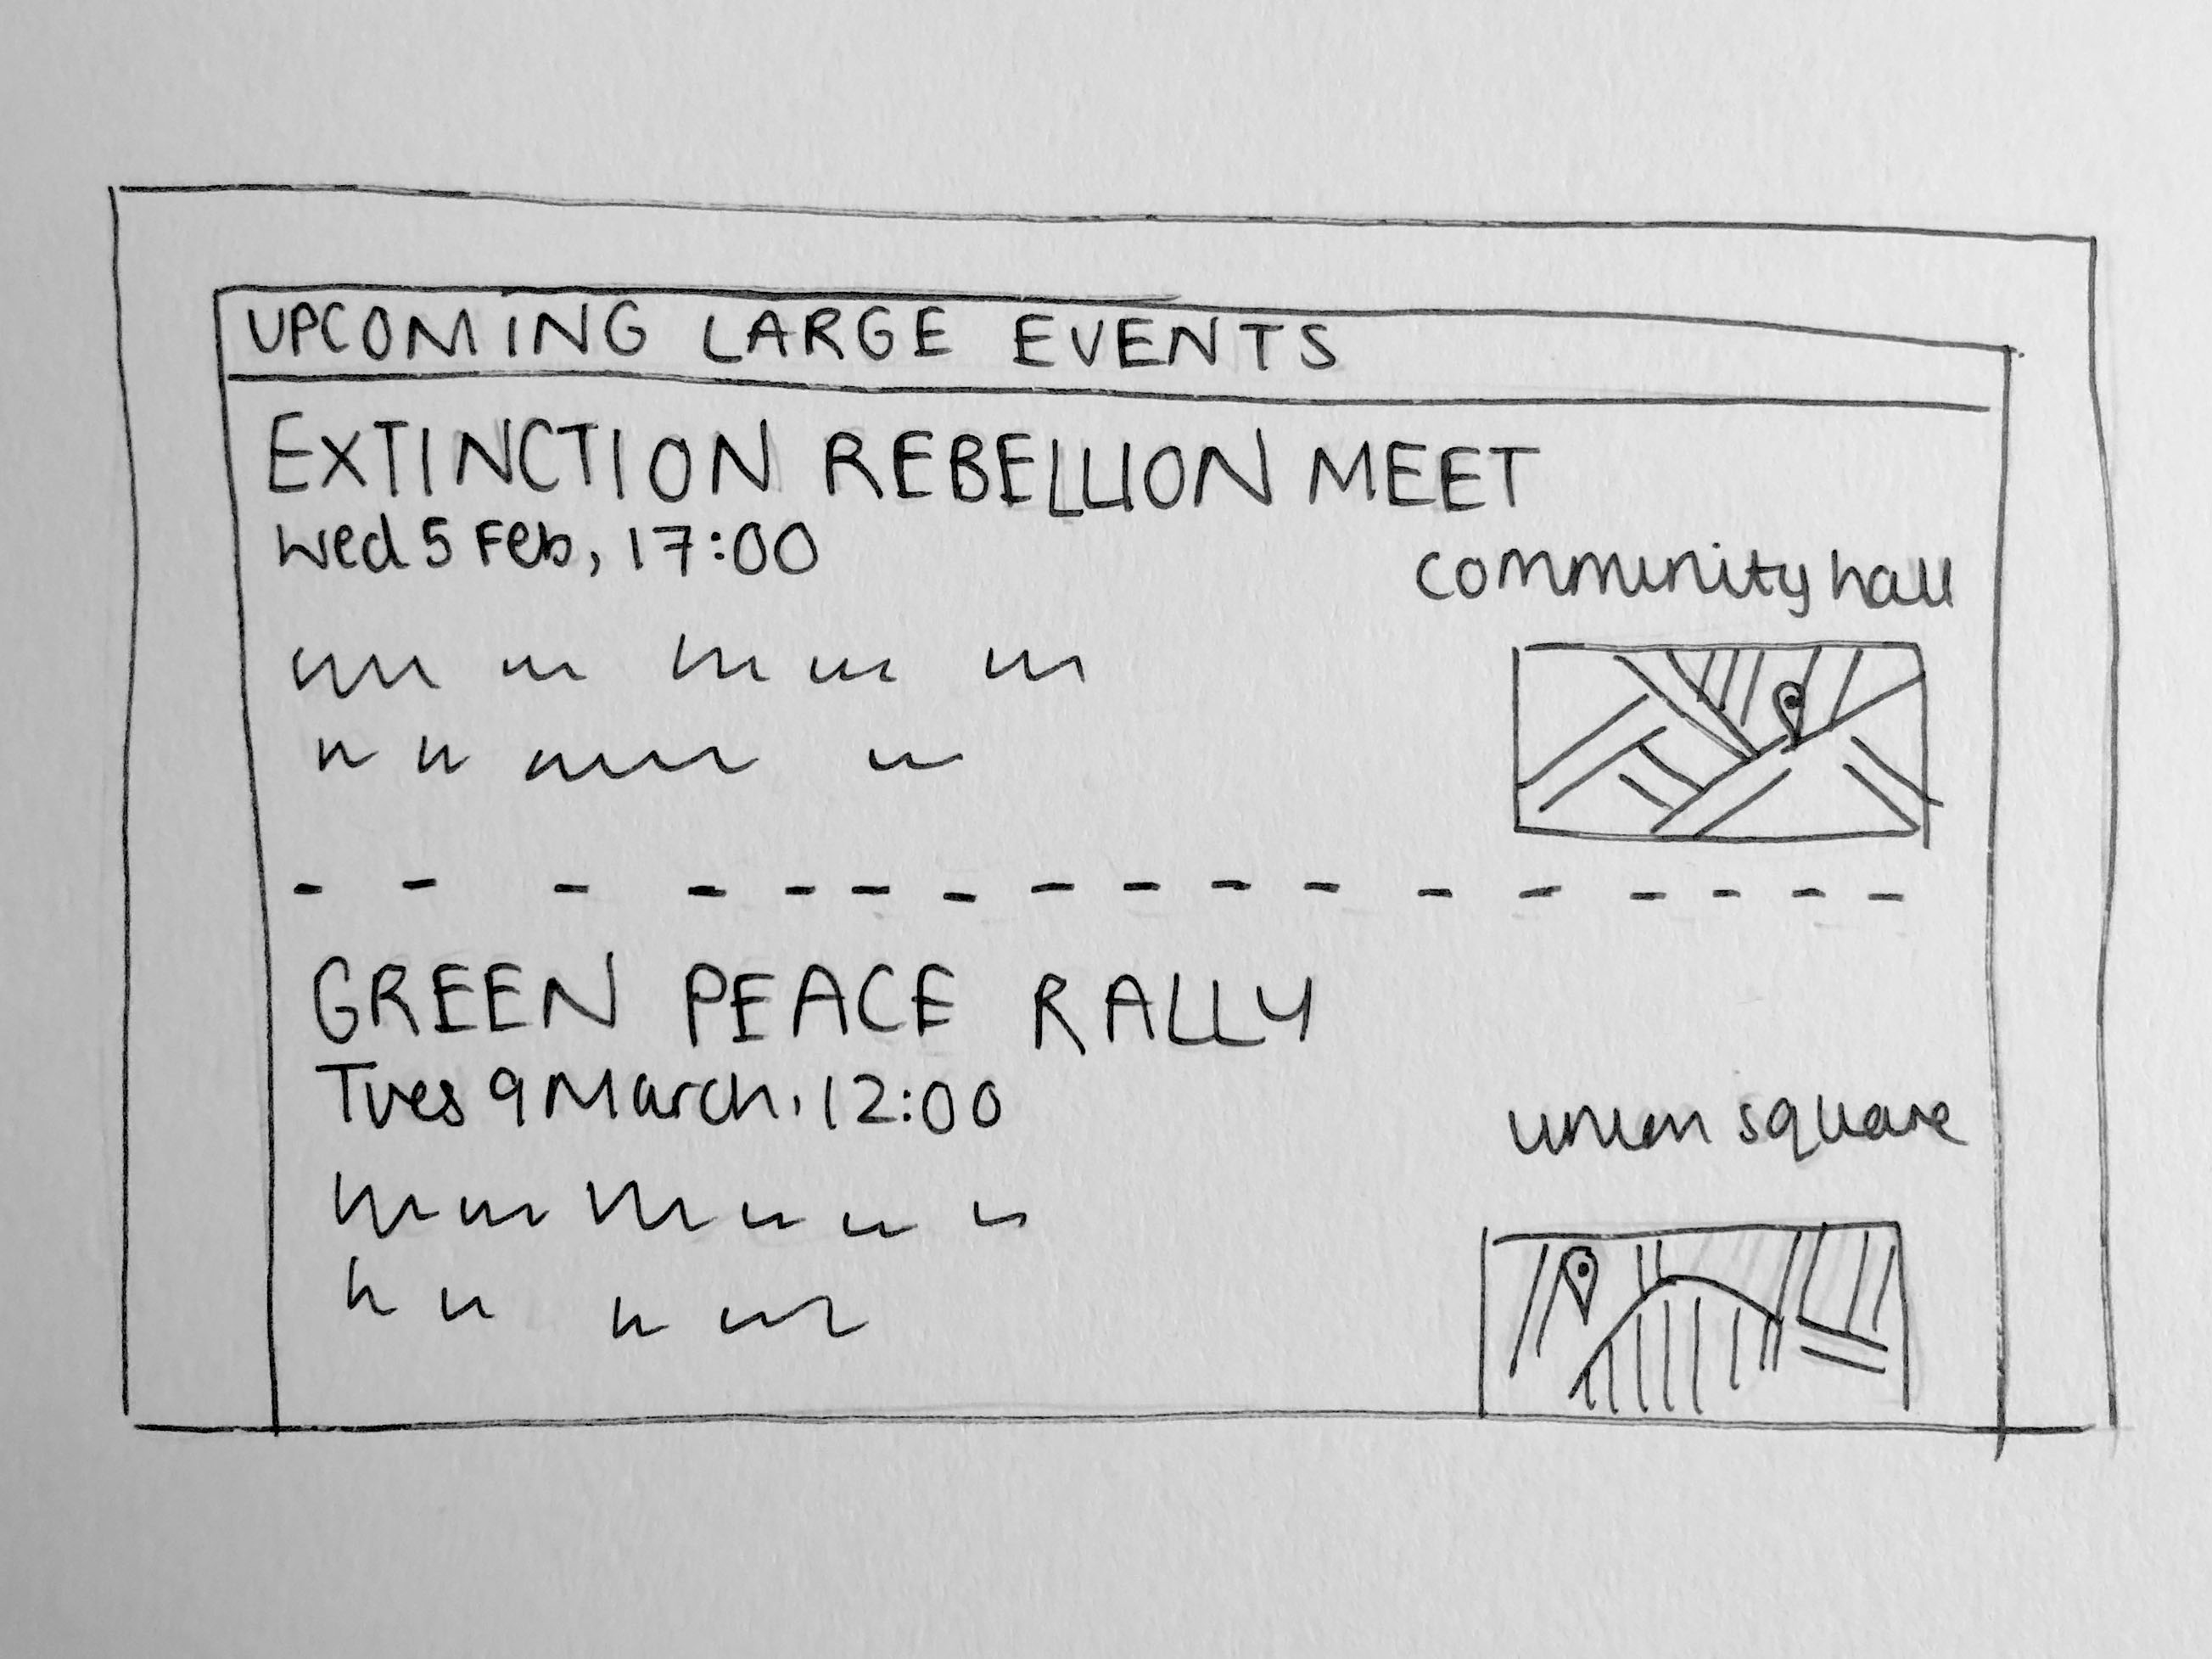 UPCOMING LARGE EVENTS
EXTINCTION REBELLION MEET
Wed 5 Feb, 17:00
community hall
GREEN PEACE RALLY
Tues 9 March, 12:00
union square